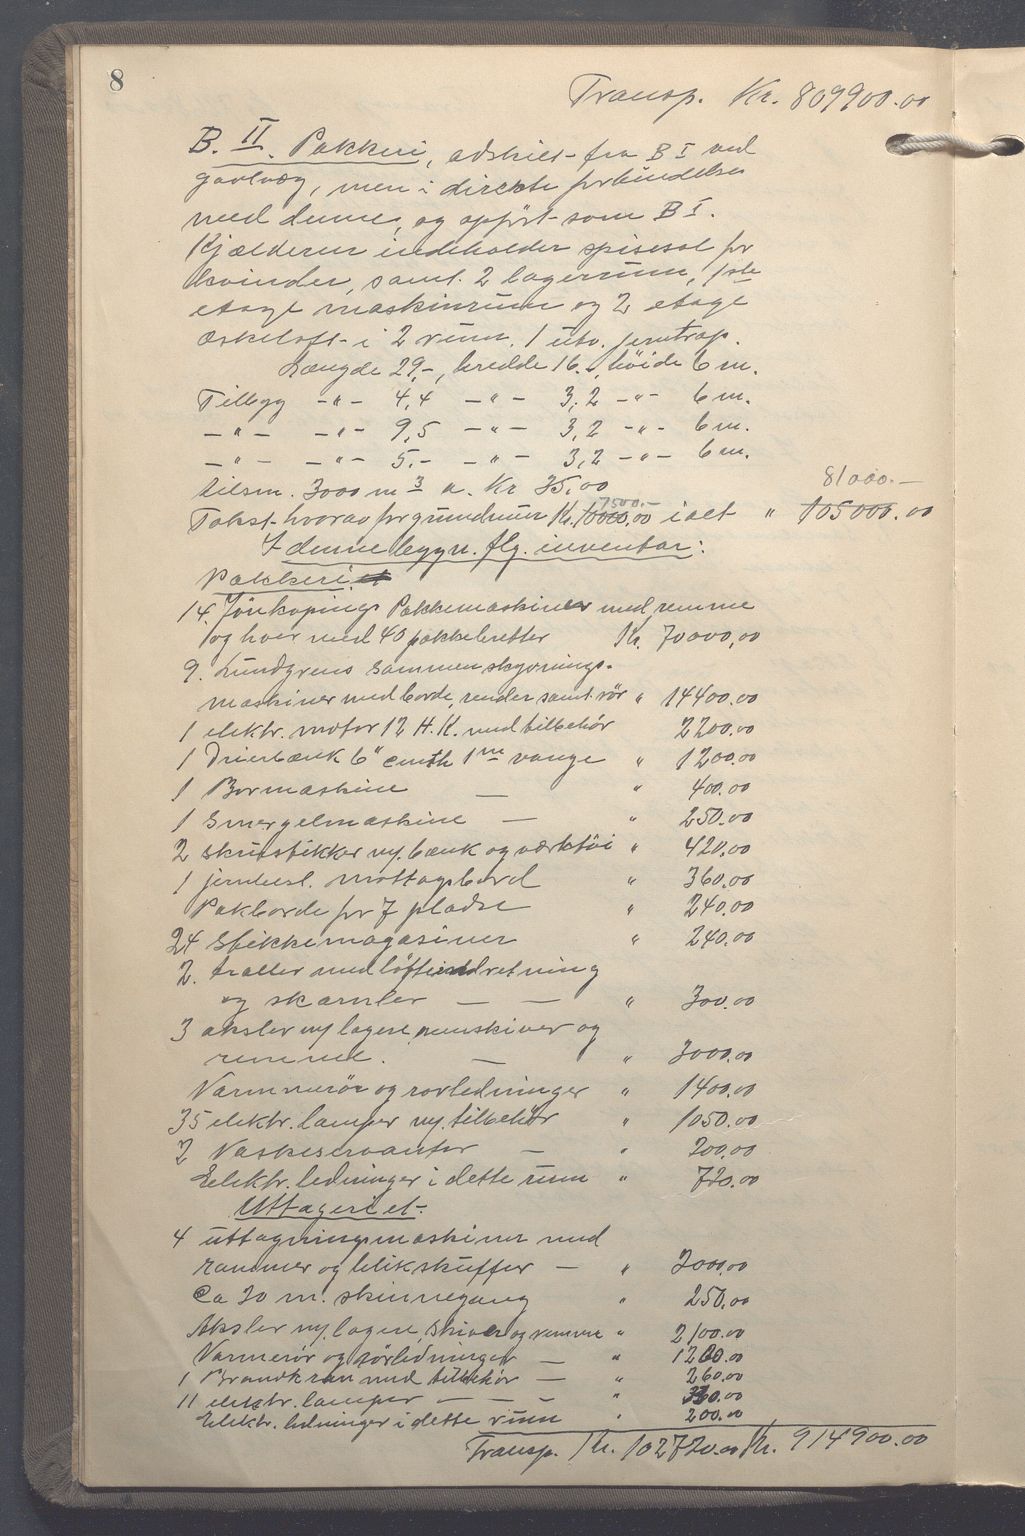 8
Transp. Kr. 809900.00
B. II. Pakkeri, adskilt fra B I ved
gavlvæg, men i direkte forbindelse
med denne, og opført som B I.
Kjælderen indeholder spisesal for
kvinder, samt 2 lagerrum, 1ste
etage maskinrum og 2 etage
æskeloft i 2 rum. 1 utv. jerntrap.
Længde 29,-, bredde 16.-, höide 6 m.
Tilbyg -"- 4,4 -"- 3,2 -"- 6 m.
-"- -"- 9,5 -"- 3,2 -"- 6 m.
-"- -"- 5,- -"- 3,2 -"- 6 m.
tilsm. 3000 m3 a. Kr 35,00
81000.-
7500.-
Takst hvorav for grundmur Kr. 10000,00 i alt " 105000.00
I denne bygn. flg. inventar:
Pakkeriet
14. Jönkopings Pakkemaskiner med remme
og hver med 40 pakkebretter Kr. 70000,00
9. Lundgrens sammenskyvnings-
maskiner med borde, render samt rör " 14400.00
1 elektr. motor 12 H.K. med tilbehör 2200.00
1 Dreiebænk 6" centh 1 m vange " 1200.00
1 Bormaskine — " 400.00
1 Smergelmaskine — " 250.00
2 skruestikker m/. bænk og værktöi " 420.00
1 jernbesl. mottagsbord " 360.00
Pakborde for 7 pladse " 240.00
24 Stikkemagasiner " 240.00
2. traller med löfteindretning
og skamler — — " 300.00
3 aksler m/ lagere, remskiver og
remme. — " 3000.00
Varmerör og rörledninger " 1400.00
35 elektr. lamper m/. tilbehör " 1050.00
2 Vaskeservanter — " 200.00
Elektr. ledninger i dette rum " 720.00
Uttageriet.
4 uttagningsmaskiner med
rammer og blikskuffer — " 2000.00
Ca 20 m. skinnegang " 250.00
Aksler m/. lagere, skiver og remme " 2100.00
Varmerör og rörledninger — " 1200.00
1 Brandkran med tilbehör — " 260.00
11 elektr. lamper — — — " 330.00
Elektr. ledninger i dette rum " 200.00
Transp. Kr. 102720.00 Kr. 914900.00